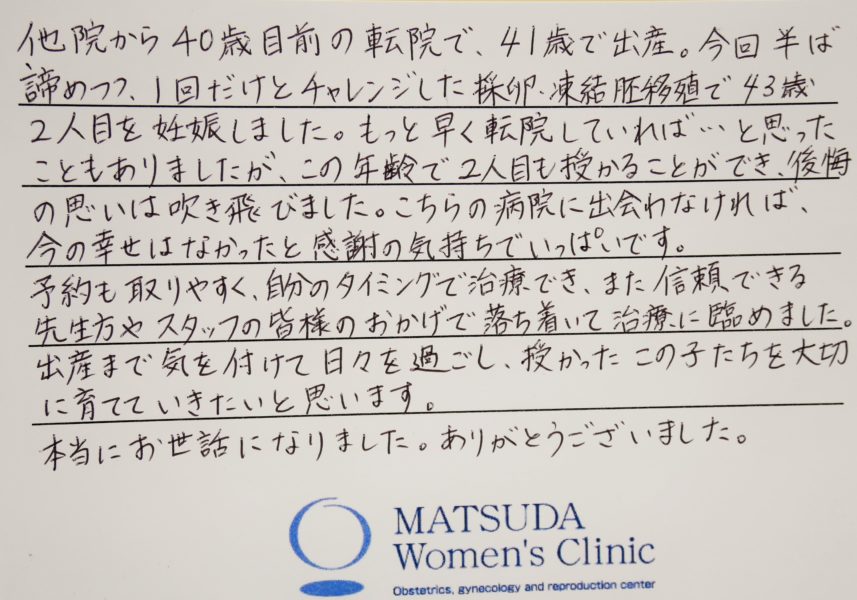 他院から40歳目前の転院で、41歳で出産。今回半ば
諦めつつ、1回だけとチャレンジした採卵・凍結胚移殖で43歳
2人目を妊娠しました。もっと早く転院していれば…と思った
こともありましたが、この年齢で2人目も授かることができ、後悔
の思いは吹き飛びました。こちらの病院に出会わなければ、
今の幸せはなかったと感謝の気持ちでいっぱいです。
予約も取りやすく、自分のタイミングで治療でき、また信頼できる
先生方やスタッフの皆様のおかげで落ち着いて治療に臨めました。
出産まで気を付けて日々を過ごし、授かったこの子たちを大切
に育てていきたいと思います。
本当にお世話になりました。ありがとうございました。
MATSUDA
Women's Clinic
Obstetrics, gynecology and reproduction center